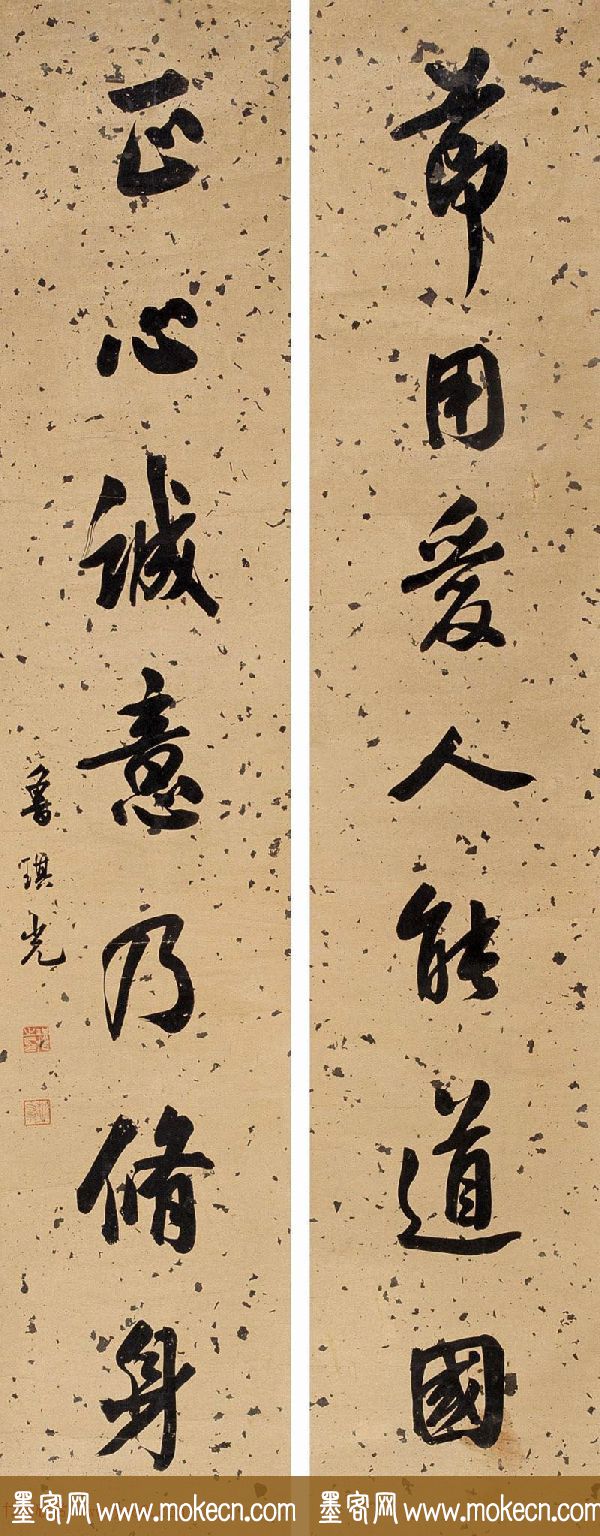 節用愛人能道國
正心誠意乃脩身
魯琪光
墨客网 www.mokecn.com
墨客网 www.mokecn.com